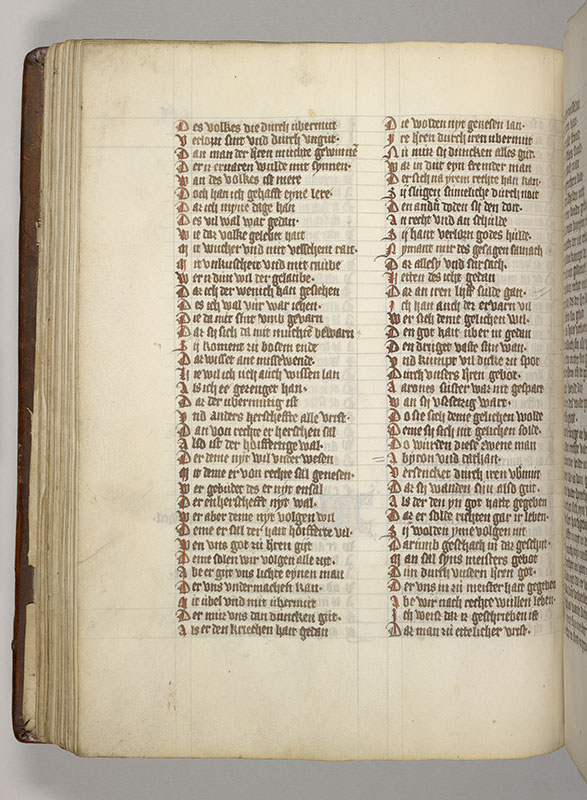 Des volkes die durch ubermut
Verlorn sint und durch ungut·
Dan man der hren muchte gewinnen
Der er ervaren wulde mit synnen·
Wan des volkes ist mere
Doch han ich gehafft eyne lere·
Dar ich myne dage han
Des vil wal war gedan·
Wie dar volke gelebet hait
Mit wucher und mit
Mit unkuscheit und mit
Wer in dint wil der gelaube·
Dar ich der wenich han gesehen
Des ich wal vur war iehen·
Die da mit sint umb gevarn
Dar sy sich da mit muchten bewarn
Sij koment zu bosem ende
Dar wisset ane missewende·
Hie wil ich uch auch wissen lan
Als ich ee gezeuget han·
Dar der ubermutig ist
Und anders herscheffte alle vrist·
Dan von rechte er herschen sal
Also ist der hoffertige wal·
Der deme nyt wil under wesen
Mit deme er von rechte sal genesen·
Wer gebudet des er nyt ensal
Der en herschefft nyt wal·
Wer aber deme nyt volgen wil
Deme er sal der hait hoffterte vil·
Wen uns got zu hren gift
Deme solen wir volgen alle zyt·
Abe er gift uns lichte eynen man
Der uns undermachen kan·
Mit ubel und mit ubermut
Der mut uns dan duncken gut·
Als er den kriechen hait gedan
Die wolden nyt genesen lan·
Ire hren durch iren ubermut
Nu mut sy duncken alles gut·
War in dut eyn fremder man
Der sich na yrem rechte han kan·
Sij slugen sumeliche durch noit
Den andern doden sij den doit·
An recht und an schulde
Sij hant verlorn godes hulde·
Nymant mir des gesagen
Dar alles und
Zeiten des icht gedan
Dar an iren hren sulde gan·
Ich han auch dar ervarn vil
Wer sich deme gelichen wil·
Den got hait uber in gedan
Den druget vaste sin wan·
Und kumpt vil dicke zu spot
Durch unsers hren gebot·
Aarones suster war nit gespart
Wan sij ussetzig wart·
Do sie sich deme gelichen wolde
Deme sij sich nit gelichen solde·
Do wurden diese zwene man
Abyron und dathan·
Versencket durch iren ubermut
Dar sij wanden sin also gut·
Als der den yn got hatte gegeben
Dar er solde richten gar ir leben·
Sij wolden yme volgen nit
Darumb geschach in dar geschicht·
Man sal syns meisters gebot
Dun durch unsern hren got·
Der uns in zu meister hait gegeben
Abe wir nach rechte wullen leben·
Ich weis dar is geschrieben ist
Dar man zu etelicher vrist·